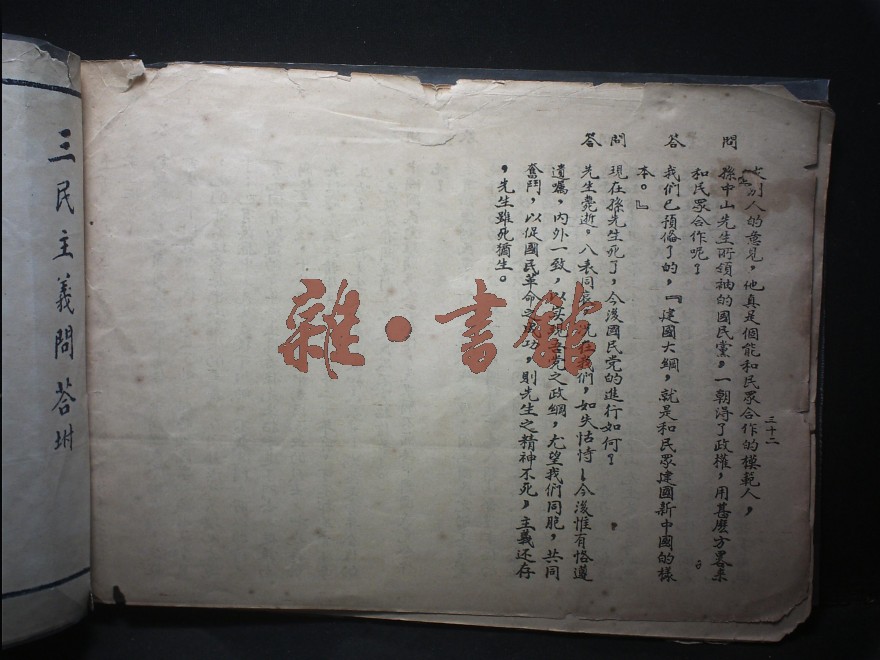 三十二
別人的意見，他真是個能和民眾合作的模範人，
問 孫中山先生所領袖的國民黨，一朝得了政權，用甚麽方畧来
和民眾合作呢？
答 我們已預偹了的，『建國大綱，就是和民眾建國新中國的樣
本。』
問 現在孫先生死了，今後國民党的進行如何？
答 先生薨逝。八表同哀，況在我們，如失怙恃！今後惟有恪遵
遺囑，內外一致，以实現吾党之政綱，尤望我們同胞，共同
奮鬥，以促國民革命之成功，則先生之精神不死，主義还存
，先生雖死猶生。
三民主義問荅坿
雜·書館